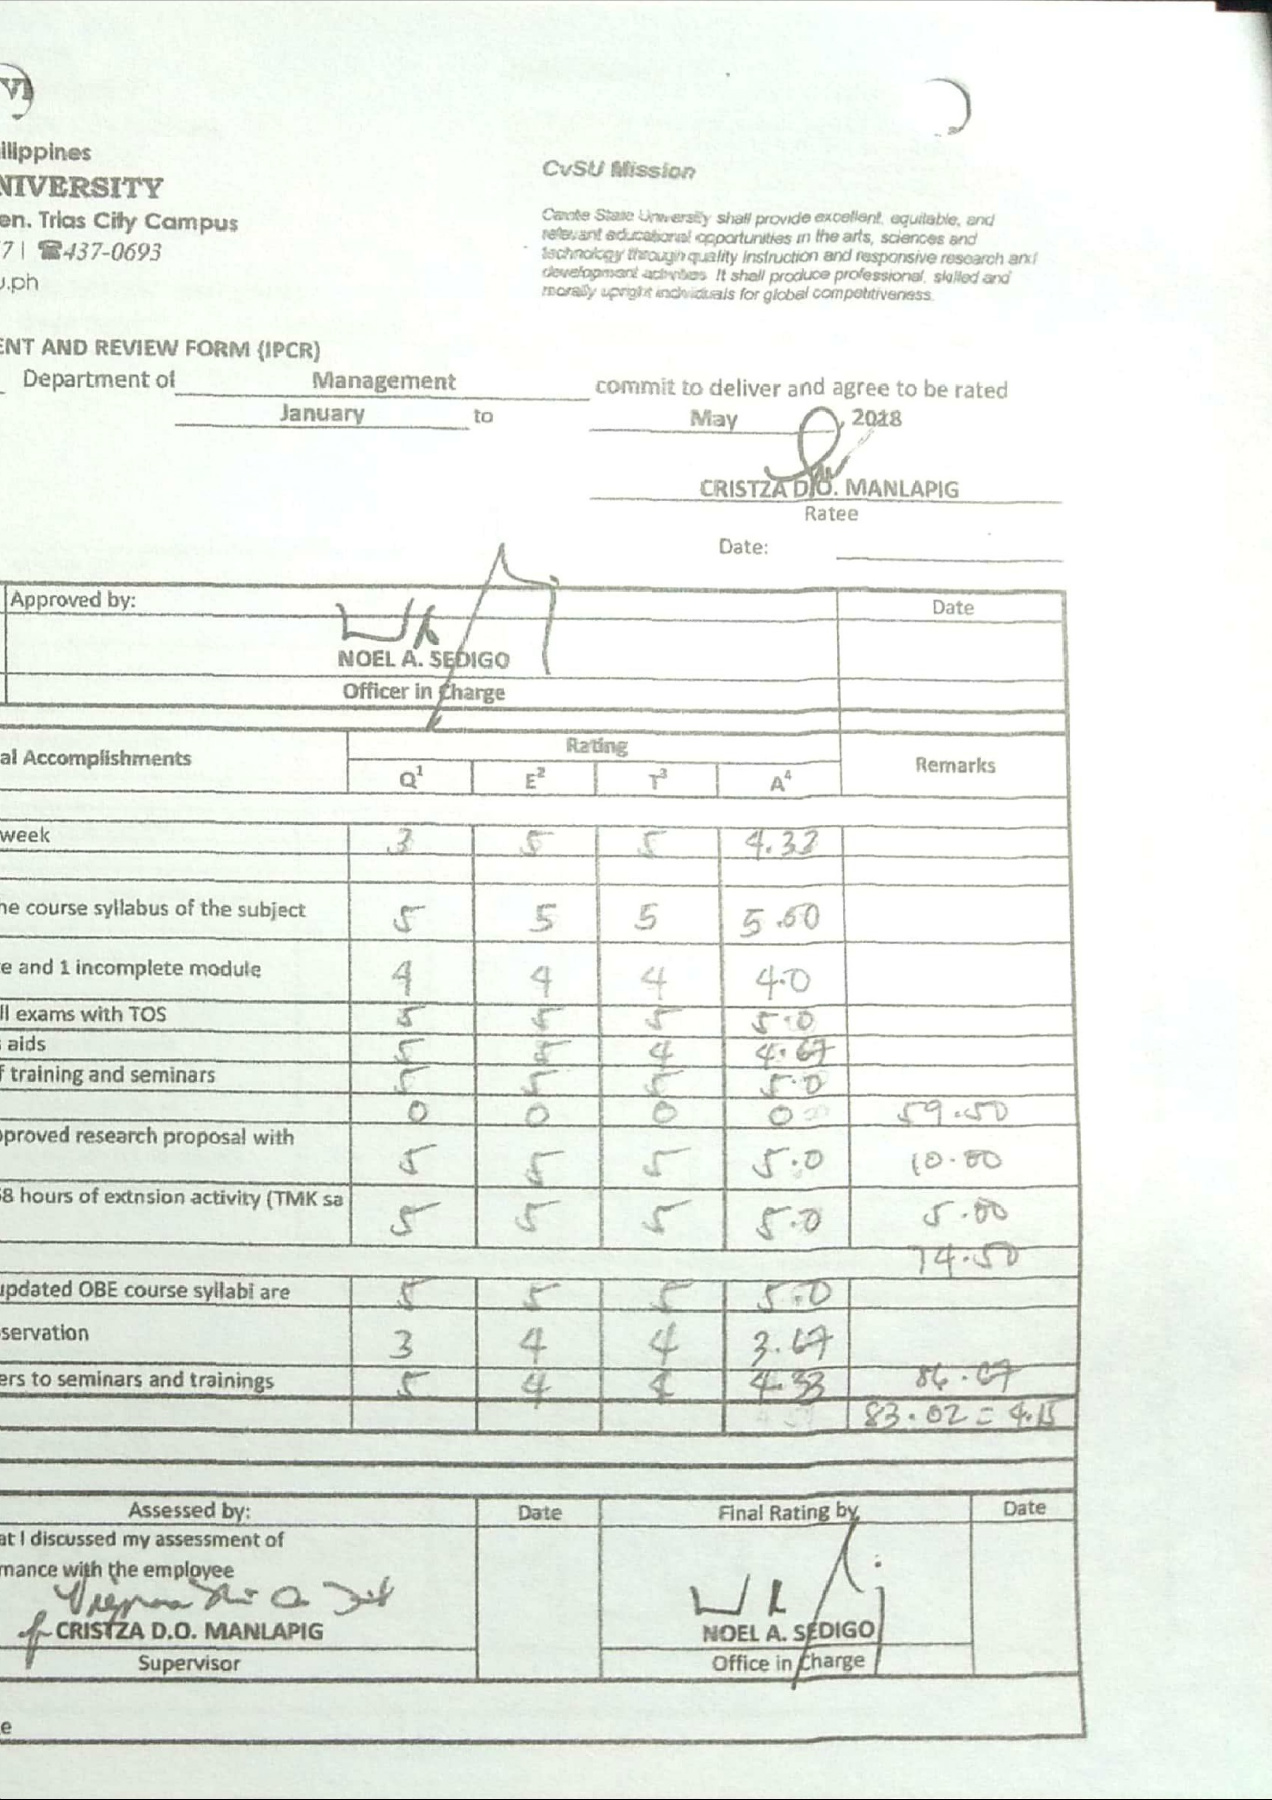 VI
ilippines
NIVERSITY
en. Trias City Campus
7 | ☎437-0693
u.ph
CvSU Mission
Cavite State University shall provide excellent, equitable, and
relevant educational opportunities in the arts, sciences and
technology through quality instruction and responsive research and
development activities. It shall produce professional, skilled and
morally upright individuals for global competitiveness.
ENT AND REVIEW FORM (IPCR)
Department of Management commit to deliver and agree to be rated
January to May , 2018
CRISTZA D.O. MANLAPIG
Ratee
Date:
Approved by: Date
NOEL A. SEDIGO
Officer in Charge
al Accomplishments Rating Remarks
Q¹ E² T³ A⁴
week 3 5 5 4.33
he course syllabus of the subject 5 5 5 5.00
e and 1 incomplete module 4 4 4 4.0
ll exams with TOS 5 5 5 5.0
s aids 5 5 4 4.67
f training and seminars 5 5 5 5.0
0 0 0 0 59.50
pproved research proposal with 5 5 5 5.0 10.00
58 hours of extnsion activity (TMK sa 5 5 5 5.0 5.00
74.50
updated OBE course syllabi are 5 5 5 5.0
servation 3 4 4 3.67
ers to seminars and trainings 5 4 4 4.33 86.67
83.02 = 4.15
Assessed by: Date Final Rating by Date
at I discussed my assessment of
mance with the employee
CRISTZA D.O. MANLAPIG NOEL A. SEDIGO
Supervisor Office in Charge
e